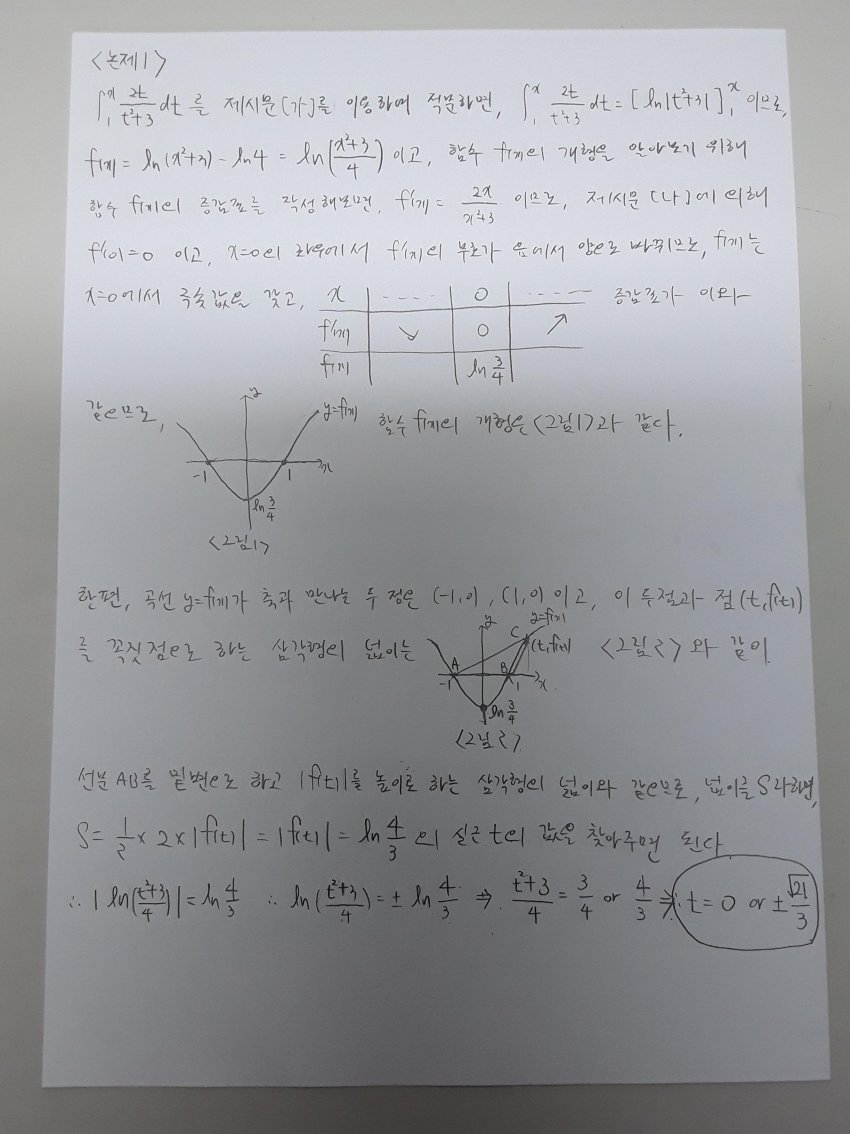 <논제1>
∫₁ˣ 2t/(t²+3) dt 를 제시문 [가]를 이용하여 적분하면, ∫₁ˣ 2t/(t²+3) dt = [ln|t²+3|]₁ˣ 이므로,
f(x) = ln(x²+3) - ln4 = ln((x²+3)/4) 이고, 함수 f(x)의 개형을 알아보기 위해
함수 f(x)의 증감표를 작성해보면, f'(x) = 2x/(x²+3) 이므로, 제시문 [나]에 의해
f'(0)=0 이고, x=0의 좌우에서 f'(x)의 부호가 음에서 양으로 바뀌므로, f(x)는
x=0에서 극솟값을 갖고, 증감표가 이와
x ···· 0 ·····
f'(x) ↘ 0 ↗
f(x) ln 3/4
같으므로, 함수 f(x)의 개형은 <그림1>과 같다.
y
y=f(x)
-1 1 x
ln 3/4
<그림1>
한편, 곡선 y=f(x)가 축과 만나는 두 점은 (-1,0), (1,0)이고, 이 두점과 점 (t,f(t))
를 꼭짓점으로 하는 삼각형의 넓이는 <그림2>와 같이
y
y=f(x)
C
(t,f(t))
A B
-1 1 x
ln 3/4
<그림2>
선분 AB를 밑변으로 하고 |f(t)|를 높이로 하는 삼각형의 넓이와 같으므로, 넓이를 S라하면,
S = 1/2 × 2 × |f(t)| = |f(t)| = ln 4/3 의 실근 t의 값을 찾아주면 된다
∴ |ln((t²+3)/4)| = ln 4/3 ∴ ln((t²+3)/4) = ± ln 4/3 ⇒ (t²+3)/4 = 3/4 or 4/3 ⇒ ∴ t = 0 or ± √21/3